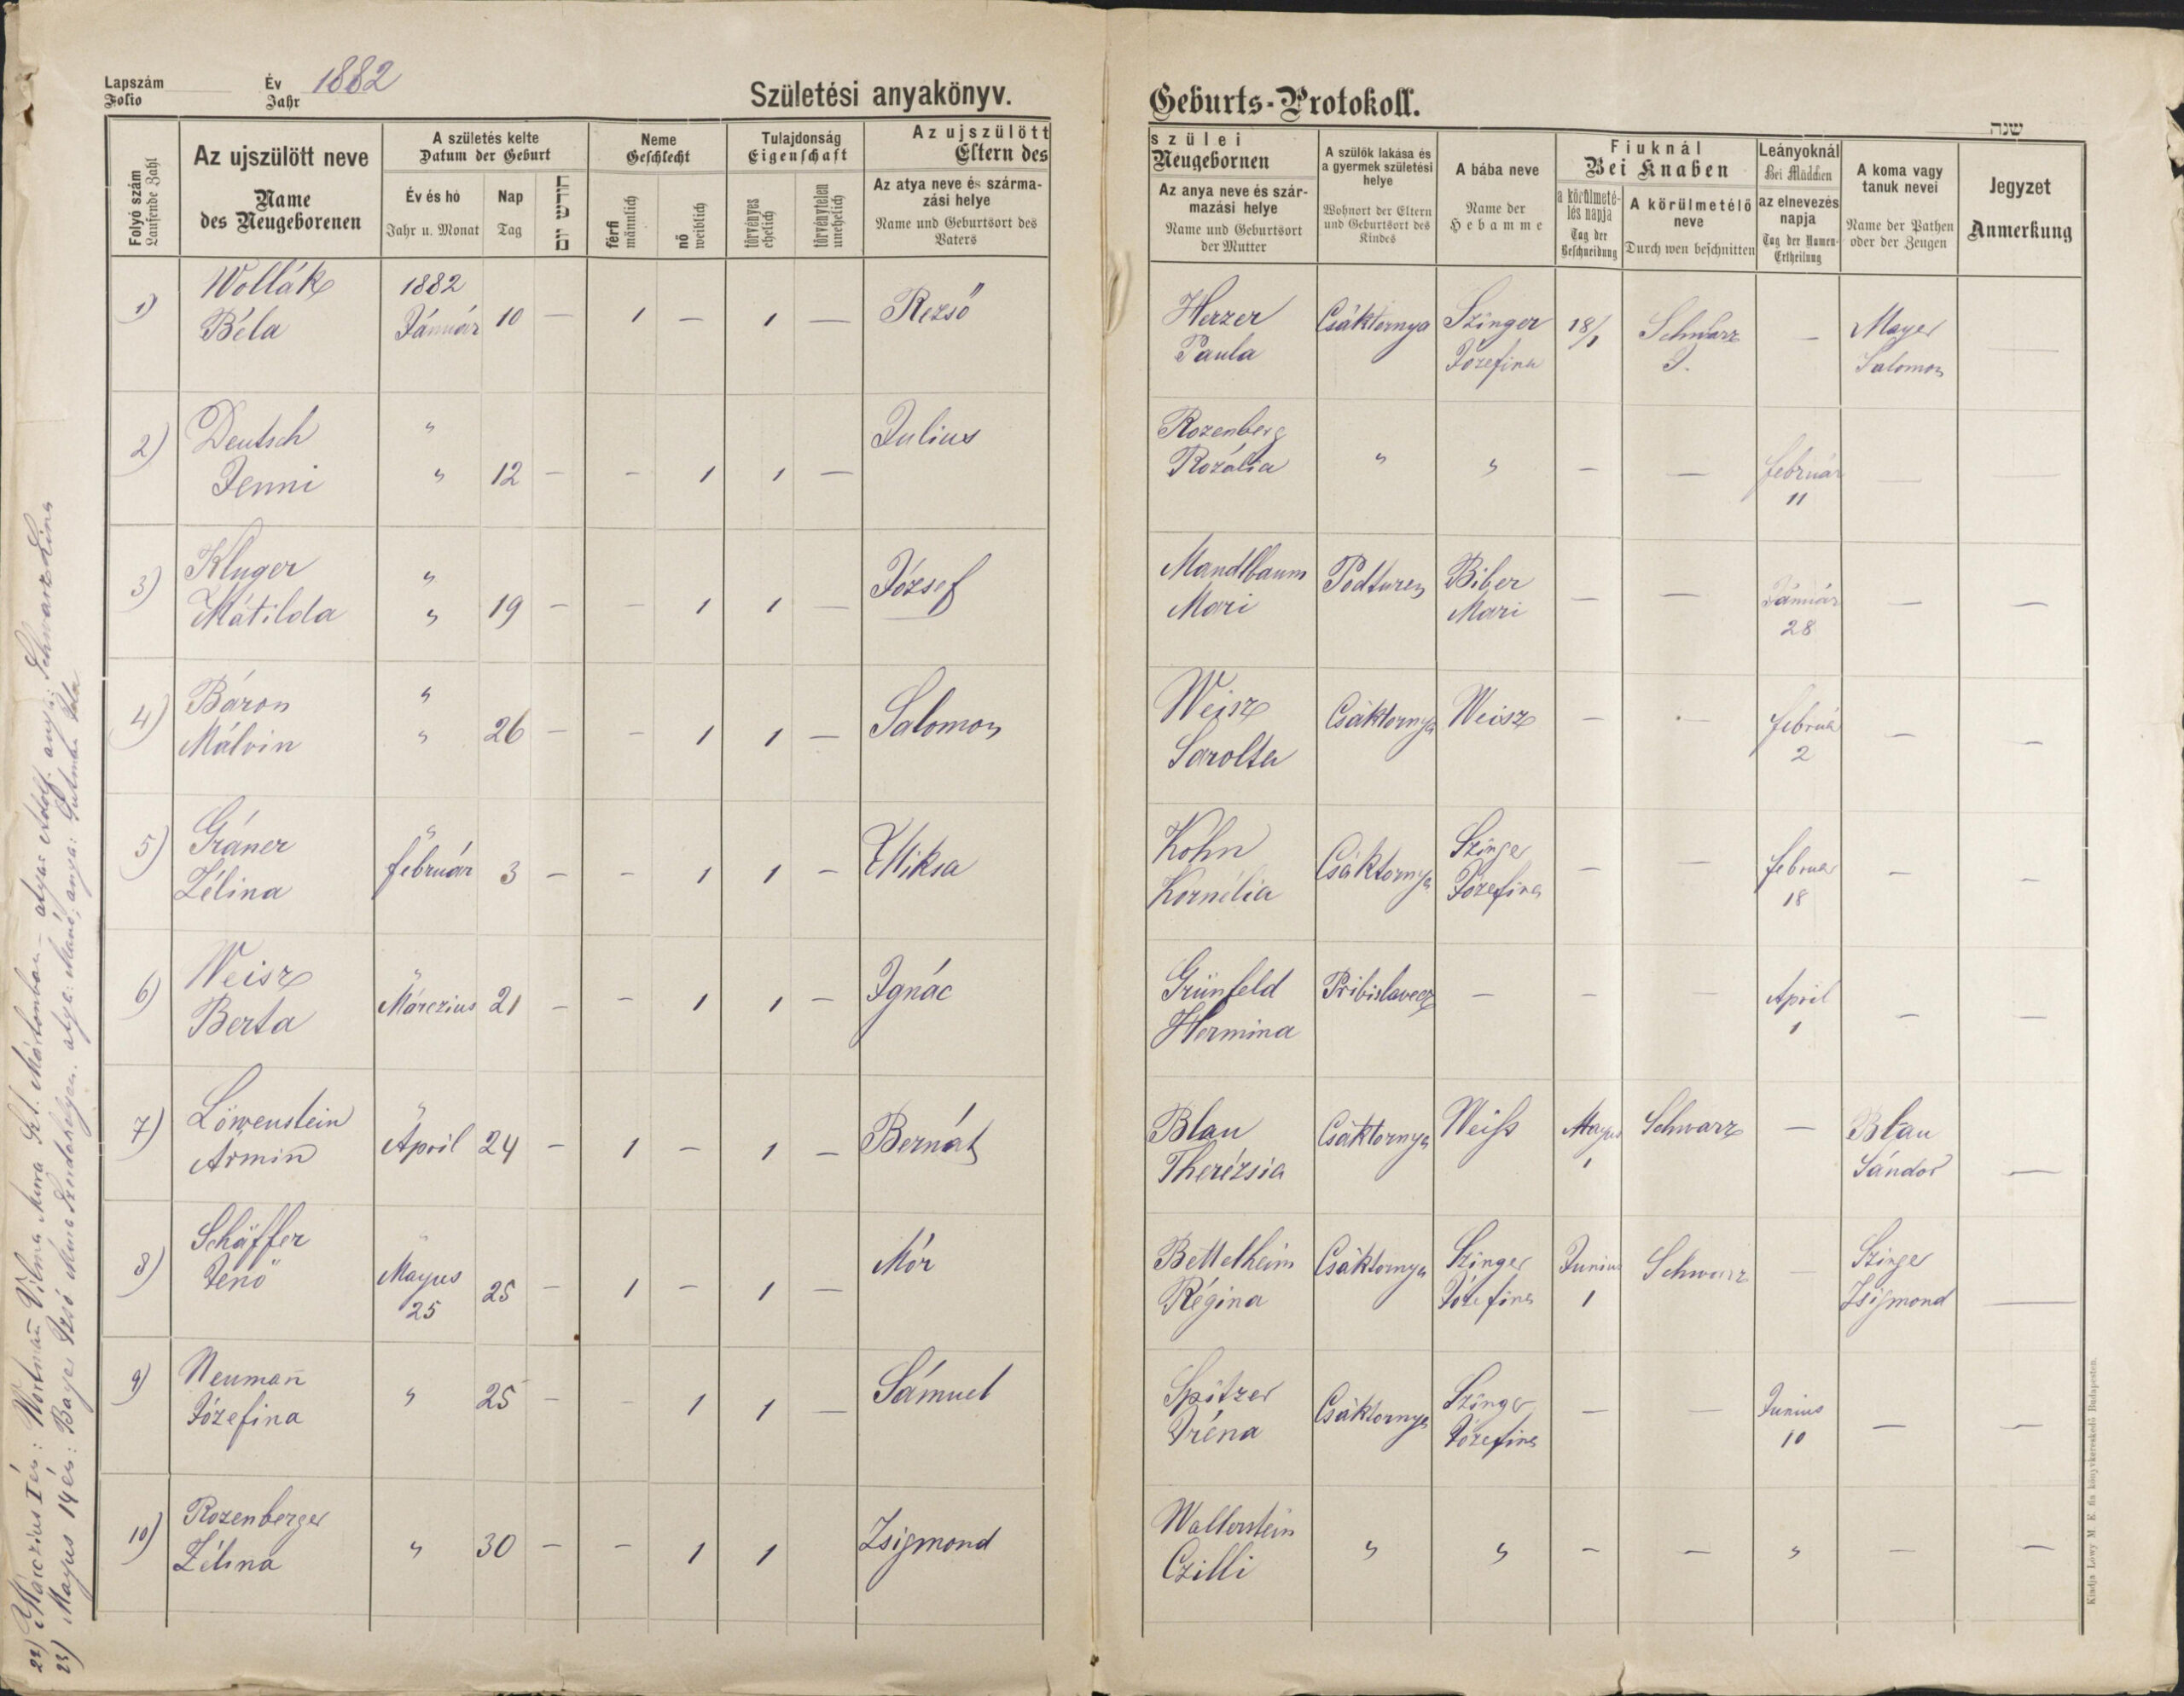 Lapszám
Folio
Év 1882
Jahr
Születési anyakönyv.
Geburts-Protokoll.
שנה
Folyó szám
Laufende Zahl
Az ujszülött neve
Name
des Neugeborenen
A születés kelte
Datum der Geburt
Év és hó
Jahr u. Monat
Nap
Tag
חודש יום
Neme
Geschlecht
férfi
männlich
nő
weiblich
Tulajdonság
Eigenschaft
törvényes
ehelich
törvénytelen
unehelich
Az ujszülött
Eltern des
Az atya neve és szárma-
zási helye
Name und Geburtsort des
Vaters
szülei
Neugebornen
Az anya neve és szár-
mazási helye
Name und Geburtsort
der Mutter
A szülők lakása és
a gyermek születési
helye
Wohnort der Eltern
und Geburtsort des
Kindes
A bába neve
Name der
Hebamme
Fiuknál
Bei Knaben
a körülmeté-
lés napja
Tag der
Beschneidung
A körülmetélő
neve
Durch wen beschnitten
Leányoknál
Bei Mädchen
az elnevezés
napja
Tag der Namen-
Ertheilung
A koma vagy
tanuk nevei
Name der Pathen
oder der Zeugen
Jegyzet
Anmerkung
1) Wollák Béla 1882 Január 10 — 1 — 1 — Rezső Herzer Paula Csáktornya Szinger Jozefina 18/1 Schwarz J. — Mayer Salomon —
2) Deutsch Jenni " " 12 — — 1 1 — Julius Rozenberg Rozália " " — — február 11 — —
3) Kluger Mátilda " " 19 — — 1 1 — József Mandlbaum Mari Podturen Biber Mari — — Január 28 — —
4) Báron Málvin " " 26 — — 1 1 — Salomon Weisz Sarolta Csáktornya Weisz — — februá 2 — —
5) Gráner Zélina " február 3 — — 1 1 — Miksa Kohn Kornélia Csáktornya Szinger Józefina — — februar 18 — —
6) Weisz Berta " Márczius 21 — — 1 1 — Ignác Grünfeld Hermina Pribislavecz — — — April 1 — —
7) Löwenstein Ármin " April 24 — 1 — 1 — Bernát Blau Therézsia Csáktornya Weiss Mayus 1 Schwarz — Blau Sándor —
8) Schäffer Jenő " Mayus 25 25 — 1 — 1 — Mór Bettelheim Régina Csáktornya Szinger Józefina Junius 1 Schwarz — Szinger Zsigmond —
9) Neumañ Józefina " 25 — — 1 1 — Sámuel Spitzer Iréna Csáktornya Szinger Józefina — — Junius 10 — —
10) Rozenberger Zélina " 30 — — 1 1 Zsigmond Wallerstein Czilli " " — — " — —
22) Márczius 1 én: Wortmañ Vilma Mura Szt. Mártonban — atya: Adolf. anya: Schwarz Lina
23) Mayus 14 én: Bayer Izsó Mura Szerdahelyen. atya: Manó; anya:
Kiadja Löwy M. E. fia könyvkereskedő Budapesten.